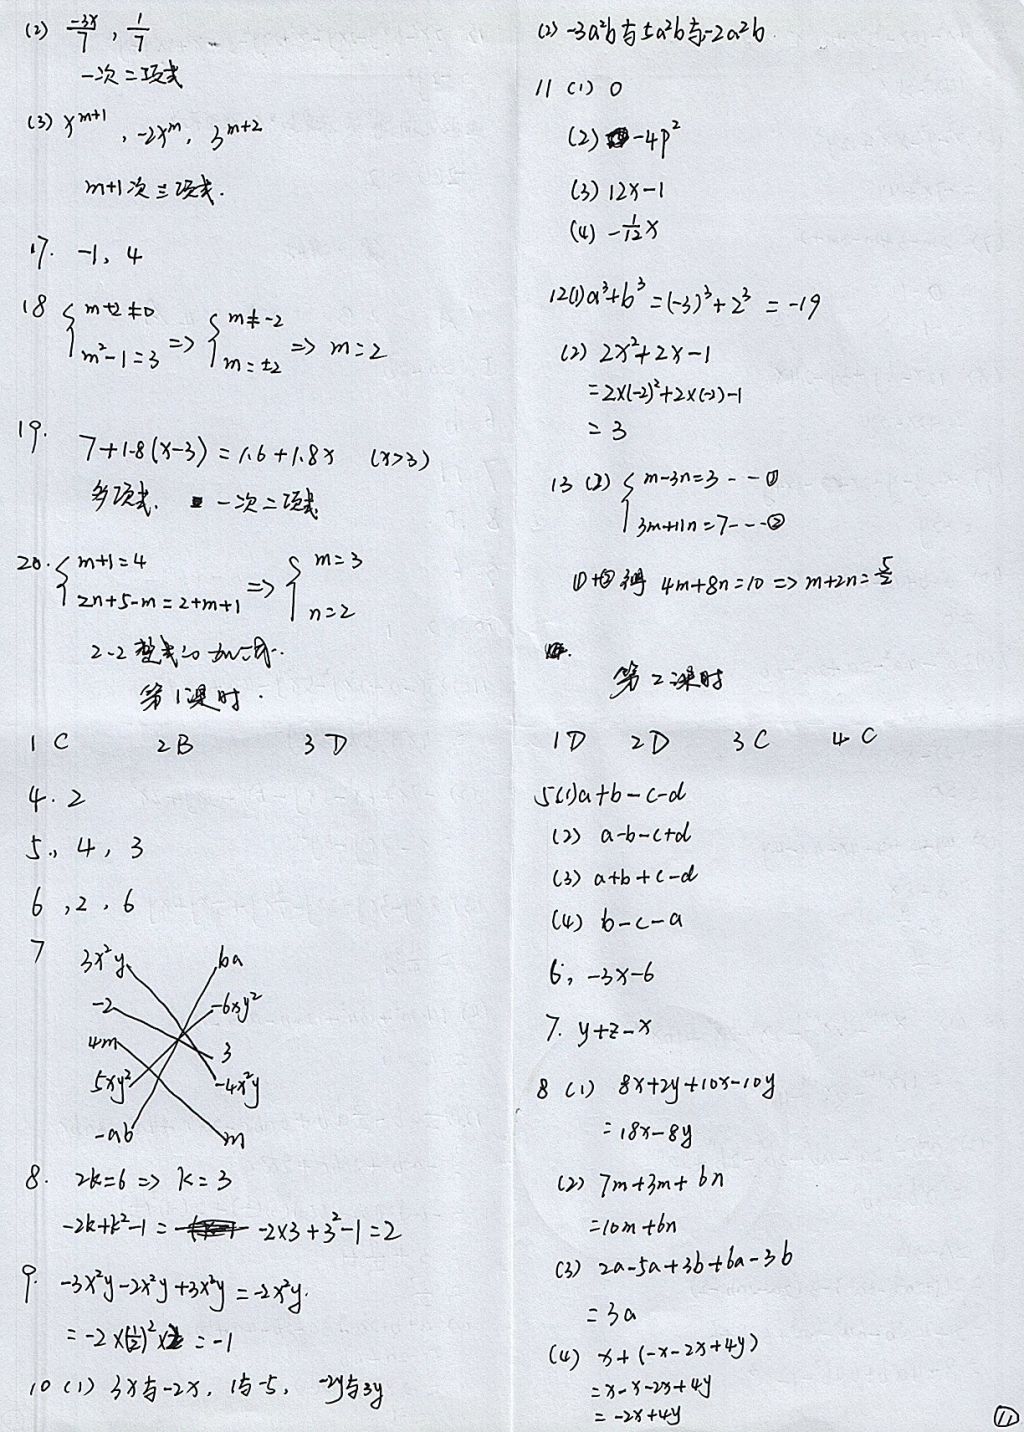 (2) -3x/7 , 1/7
一次二项式
(3) x^{m+1} , -2x^m , 3^{m+2}
m+1次三项式.
17. -1, 4
18 { m+2≠0 => { m≠-2 => m=2
m²-1=3 m=±2
19. 7+1.8(x-3) = 1.6+1.8x (x>3)
多项式. 一次二项式
20. { m+1=4 => { m=3
2n+5-m=2+m+1 n=2
2-2 整式的加减.
第1课时.
1 C 2 B 3 D
4. 2
5., 4, 3
6, 2, 6
7 3x²y ba
-2 -6xy²
4m 3
5xy² -4x²y
-ab m
8. 2k=6 => k=3
-2k+k²-1 = -2×3+3²-1=2
9. -3x²y-2x²y+3x²y=-2x²y.
= -2×(1/2)²×2 = -1
10 (1) 3x与-2x, 1与-5, -2y与3y
(2) -3a²b与5a²b与-2a²b
11 (1) 0
(2) -4p²
(3) 12x-1
(4) -1/12 x
12(1) a³+b³=(-3)³+2³ = -19
(2) 2x²+2x-1
=2×(-2)²+2×(-2)-1
= 3
13 (2) { m-3n=3 --①
3m+11n=7---②
①+②得 4m+8n=10 => m+2n=5/2
第2课时
1 D 2 D 3 C 4 C
5(1) a+b-c-d
(2) a-b-c+d
(3) a+b+c-d
(4) b-c-a
6, -3x-6
7. y+z-x
8 (1) 8x+2y+10x-10y
=18x-8y
(2) 7m+3m+6n
=10m+6n
(3) 2a-5a+3b+6a-3b
=3a
(4) x+(-x-2x+4y)
=x-x-2x+4y
= -2x+4y
11